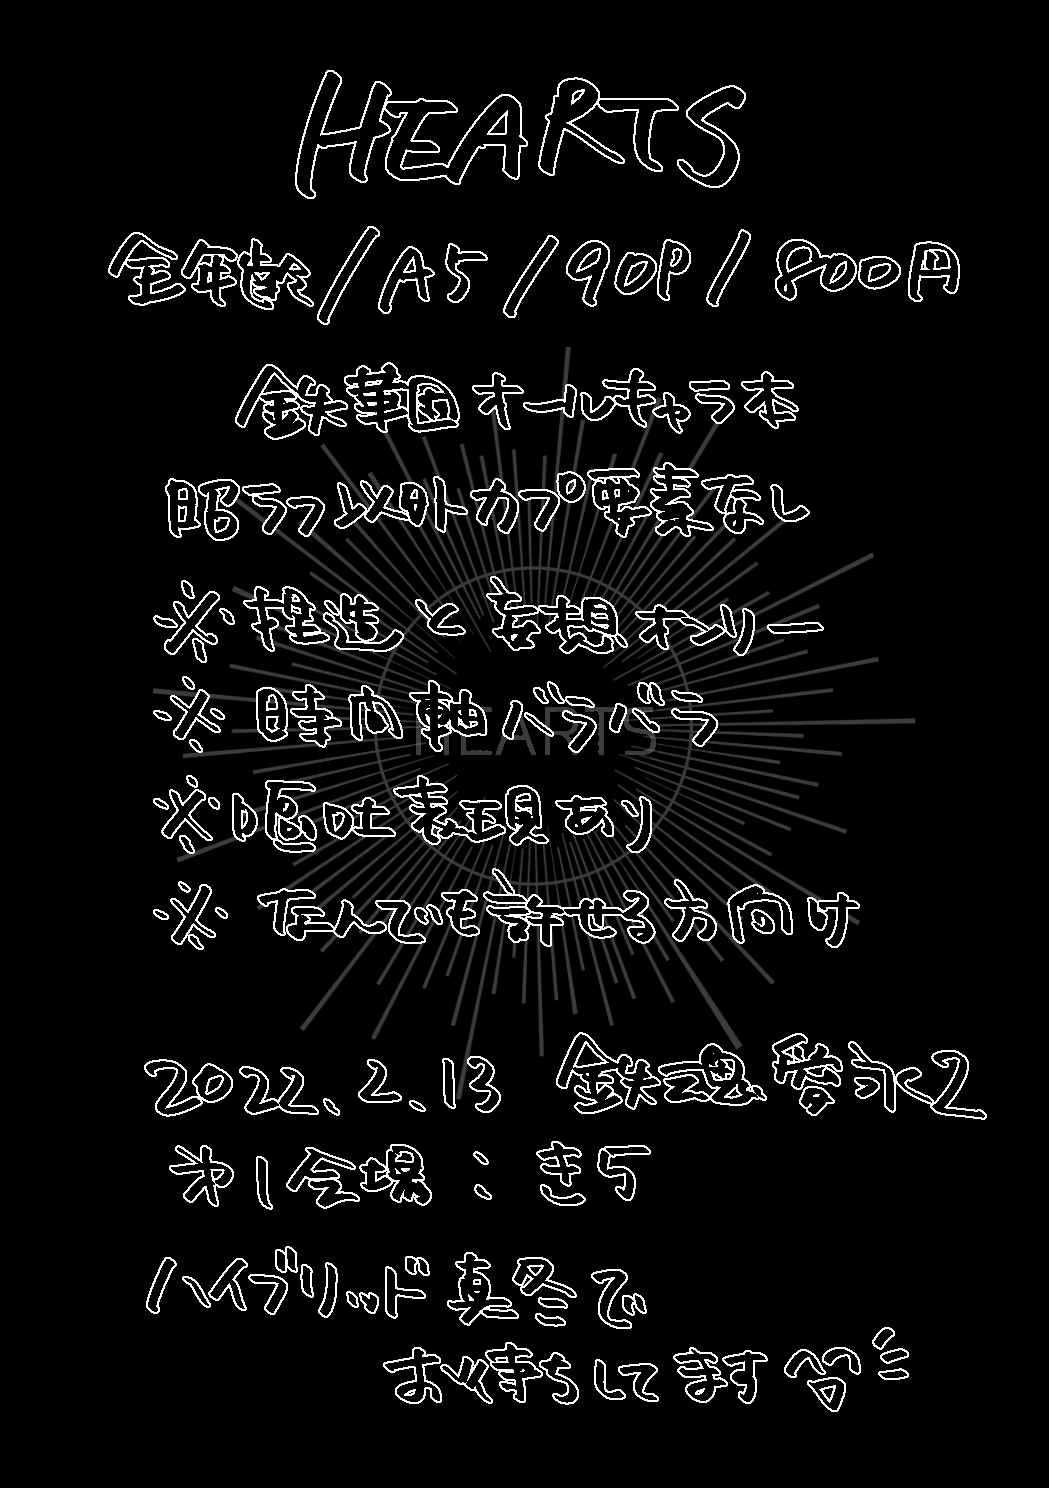 HEARTS
全年齢/A5/90P/800円
鉄華団オールキャラ本
昭ラフ以外カプ要素なし
※捏造と妄想オンリー
※時間軸バラバラ
HEARTS
※嘔吐表現あり
※なんでも許せる方向け
2022.2.13 鉄魂愛永2
第1会場:き5
ハイブリッド真冬で
お待ちしてます